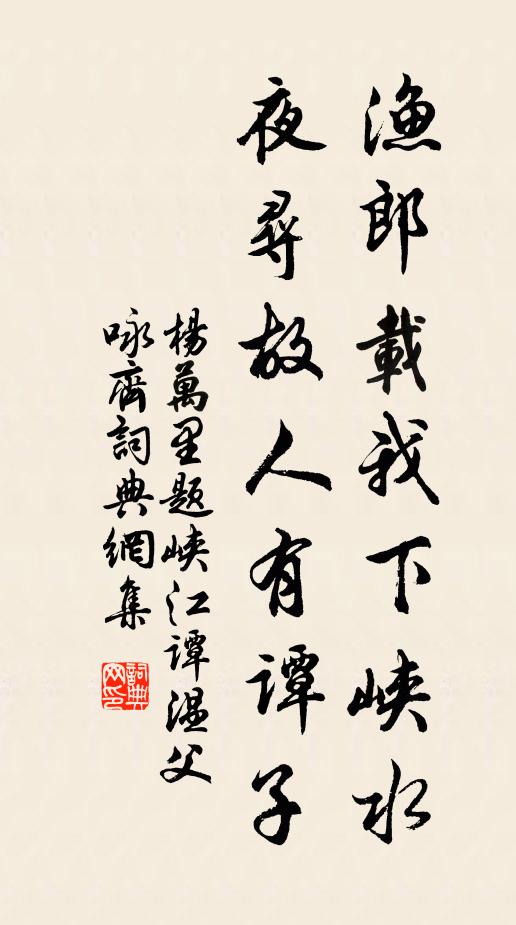 漁郎載我下峽水
夜尋故人有譚子
楊萬里題峽江譚温父
咏齊詞典網集
詞典网印